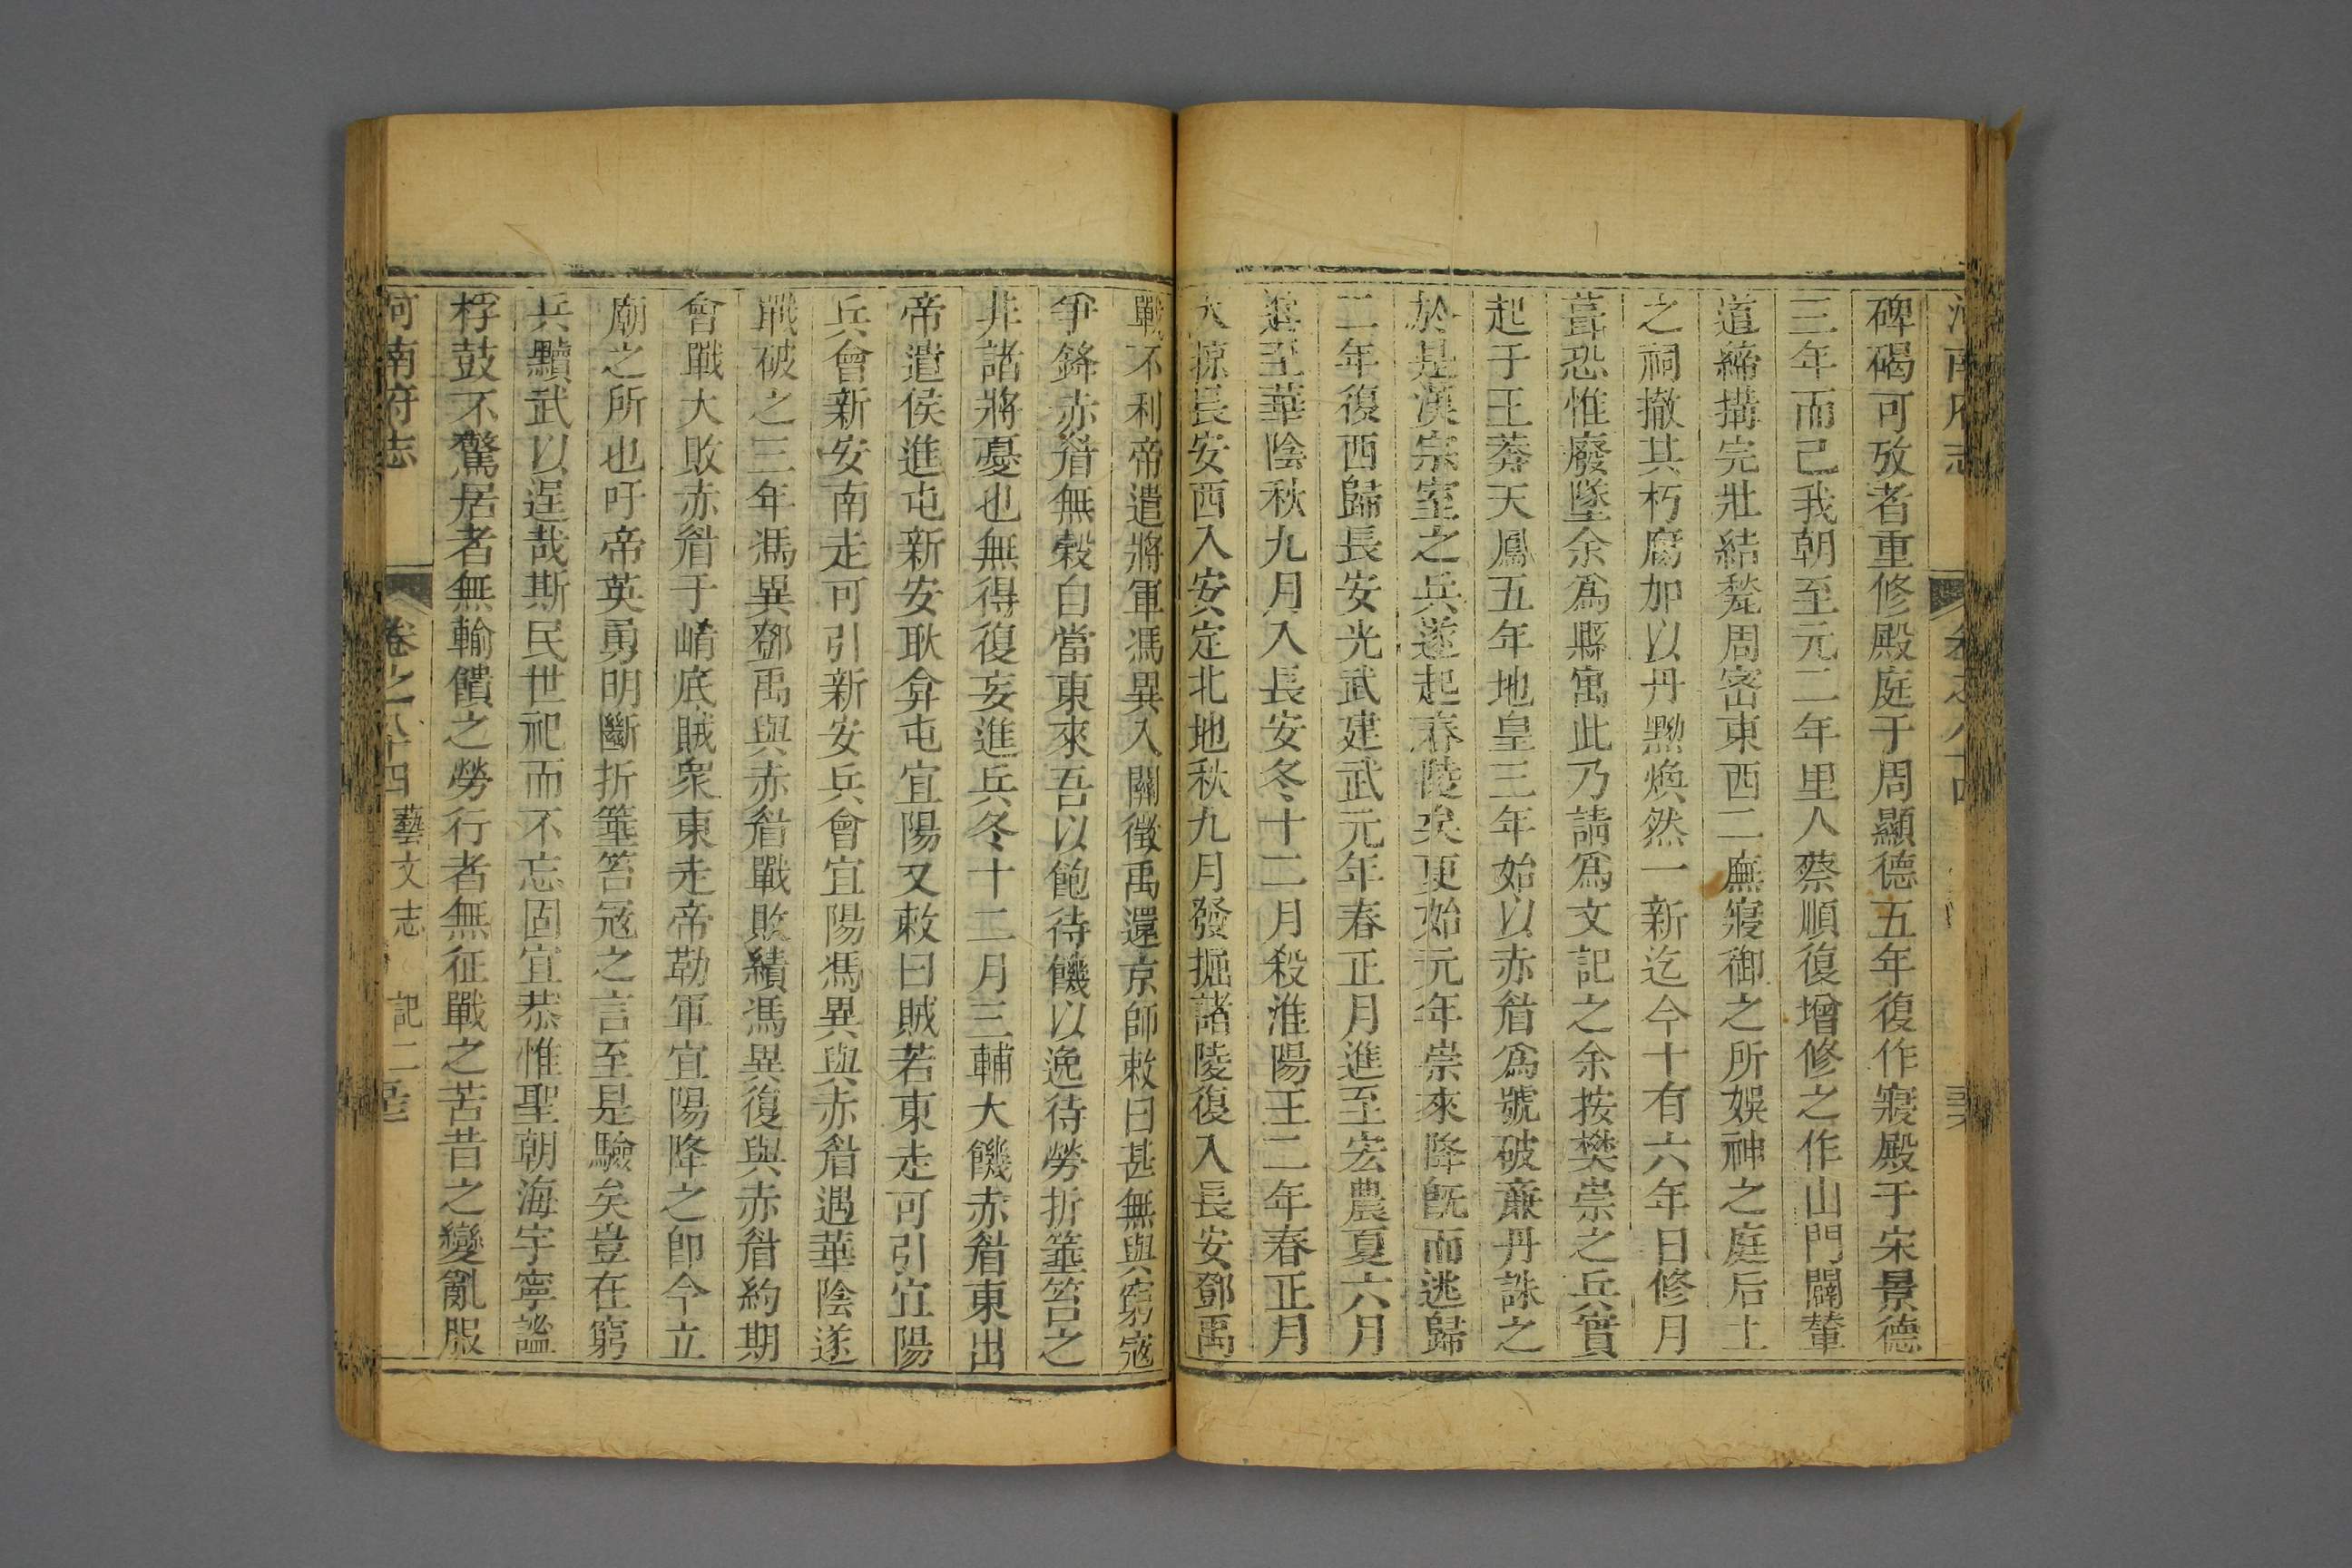 河南府志 卷之八十四
碑碣可攷者重修殿庭于周顯德五年復作寢殿于宋景德
三年而已我朝至元二年里人蔡順復增修之作山門闢輦
道締搆完壯結甃周密東西二廡寢御之所娛神之庭后土
之祠撤其朽腐加以丹黝煥然一新迄今十有六年日修月
葺恐惟廢墜余爲縣寓此乃請爲文記之余按樊崇之兵實
起于王莽天鳳五年地皇三年始以赤眉爲號破亷丹誅之
於是漢宗室之兵遂起舂陵矣更始元年崇來降旣而逃歸
二年復西歸長安光武建武元年春正月進至宏農夏六月
進至華陰秋九月入長安冬十二月殺淮陽王二年春正月
大掠長安西入安定北地秋九月發掘諸陵復入長安鄧禹
戰不利帝遣將軍馮異入關徵禹還京師敕曰甚無與窮寇
爭鋒赤眉無榖自當東來吾以飽待饑以逸待勞折箠笞之
非諸將憂也無得復妄進兵冬十二月三輔大饑赤眉東出
帝遣侯進屯新安耿弇屯宜陽又敕曰賊若東走可引宜陽
兵會新安南走可引新安兵會宜陽馮異與赤眉遇華陰遂
戰破之三年馮異鄧禹與赤眉戰敗績馮異復與赤眉約期
會戰大敗赤眉于崤底賊衆東走帝勒軍宜陽降之卽今立
廟之所也吁帝英勇明斷折箠笞寇之言至是驗矣豈在窮
兵黷武以逞哉斯民世祀而不忘固宜恭惟聖朝海宇寧謐
桴鼓不驚居者無輸饋之勞行者無征戰之苦昔之變亂服
河南府志 卷之八十四 藝文志 記二